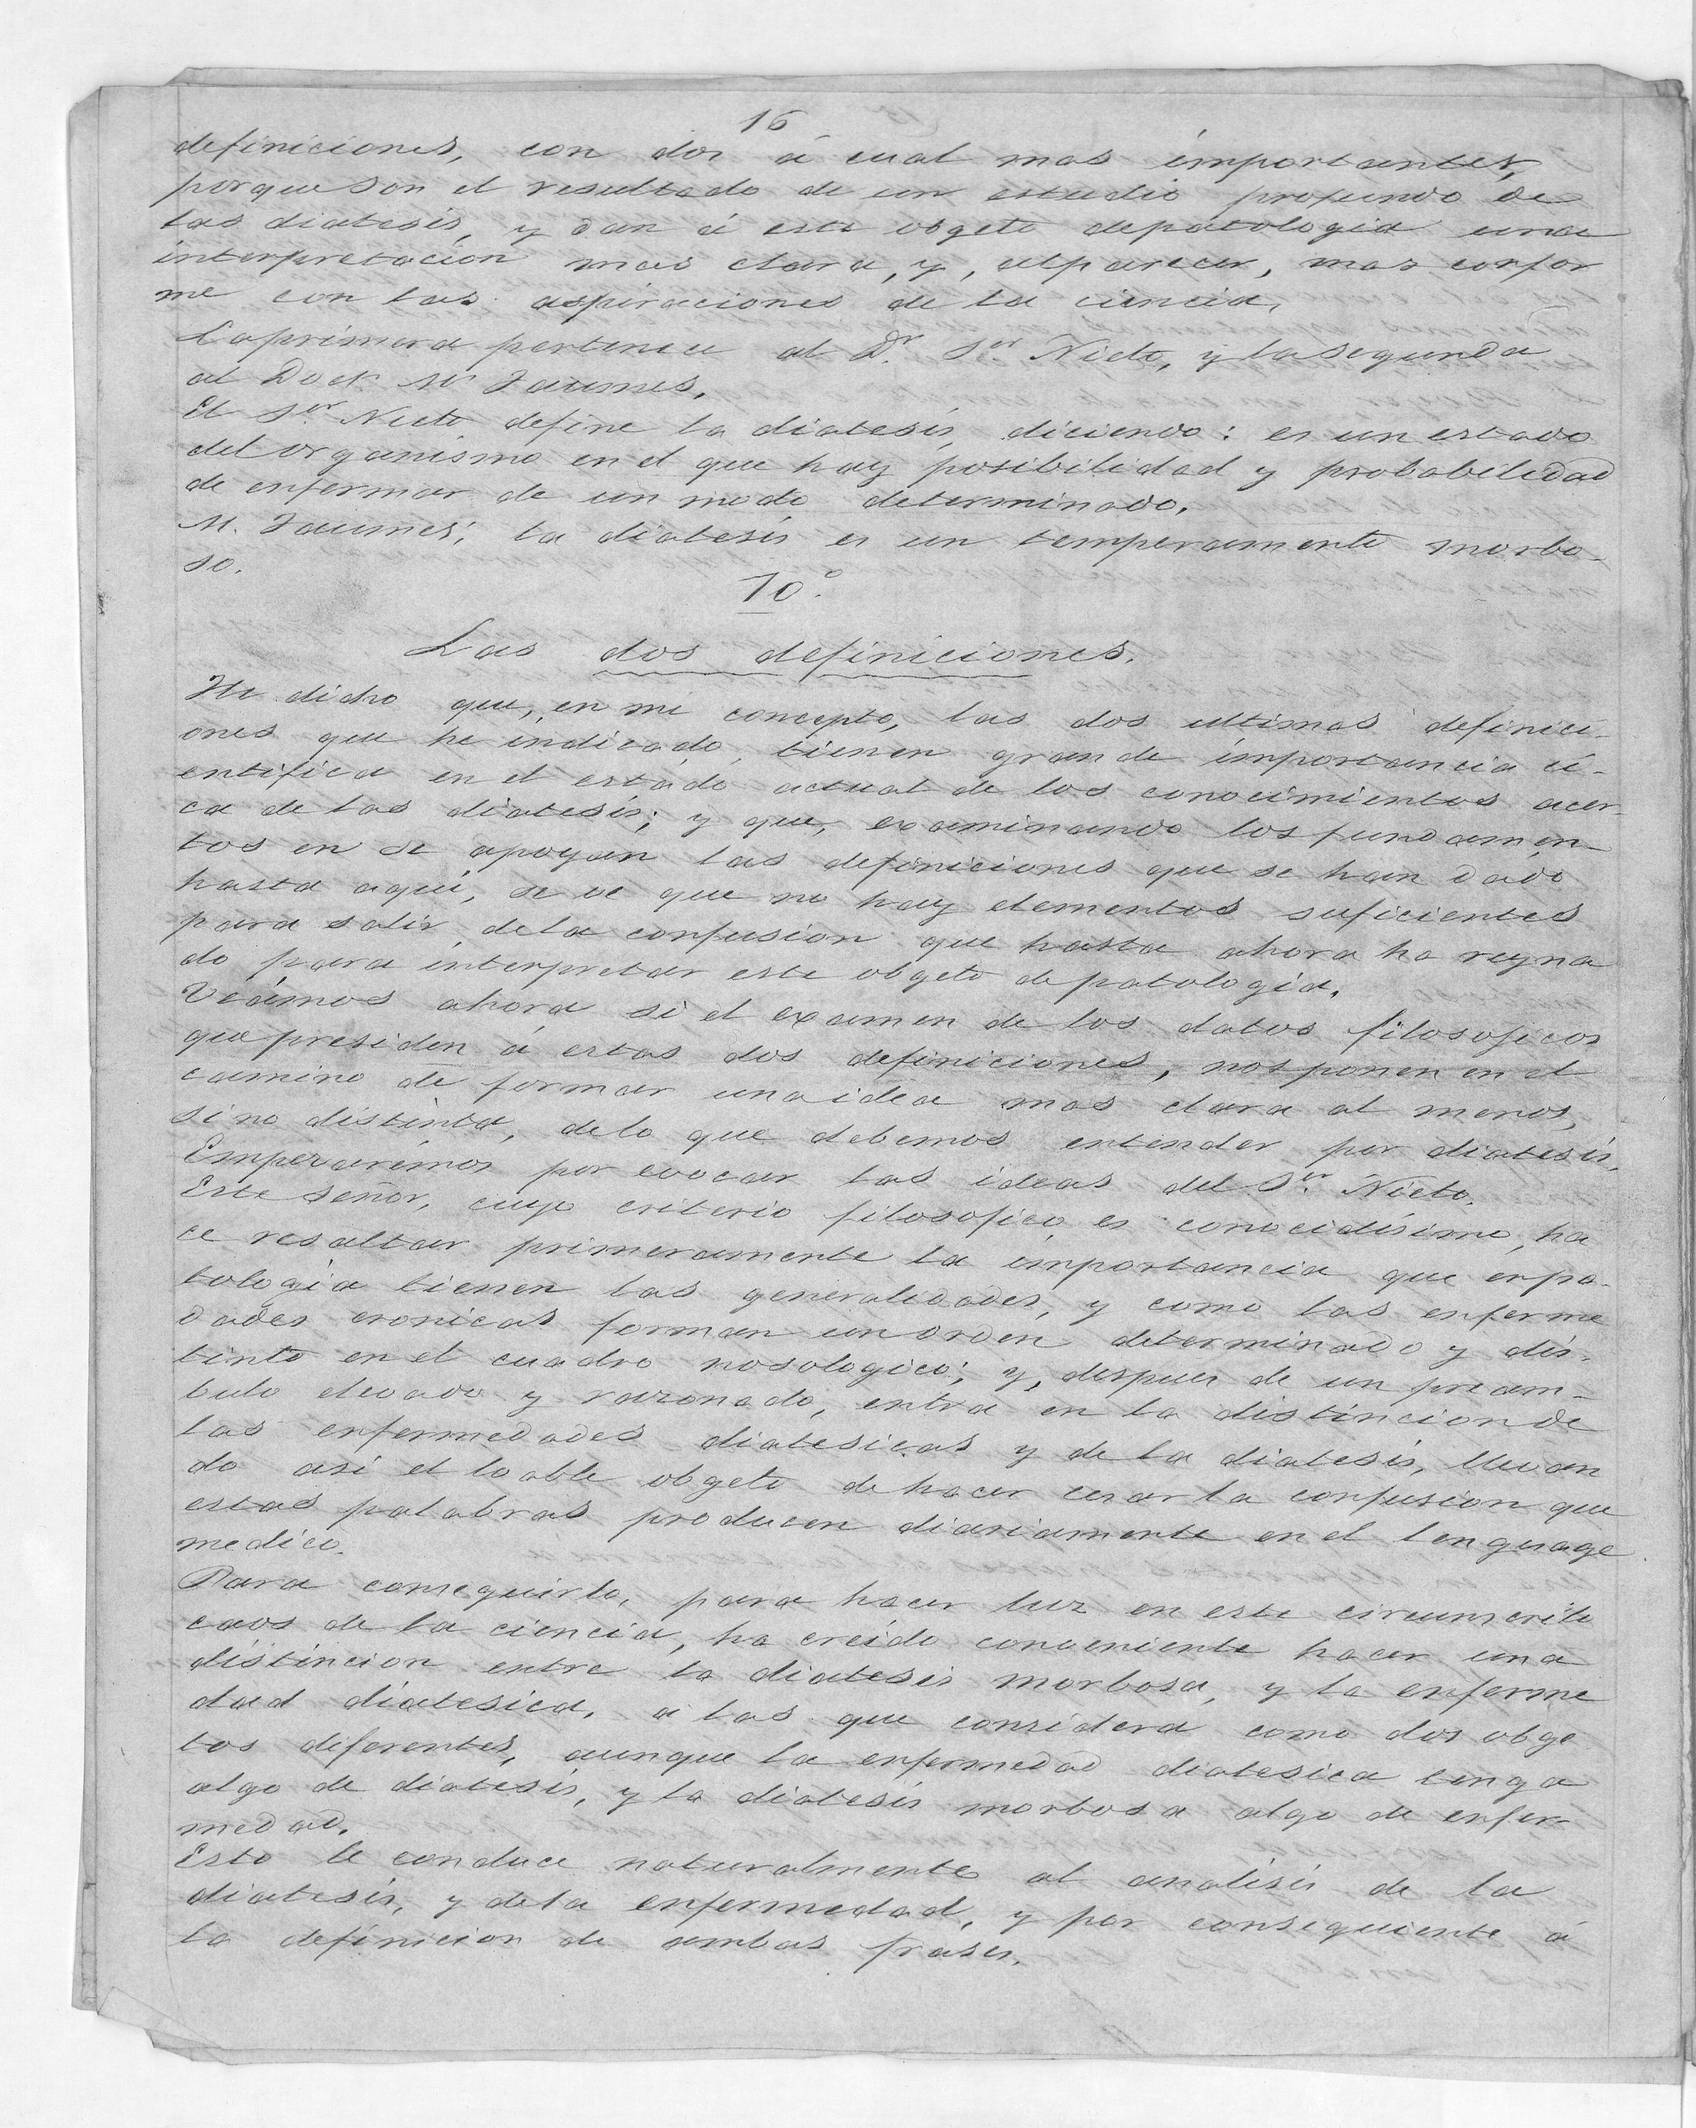 16
definiciones, con dos á cual mas importantes,
porque son el resultado de un estudio profundo de
las diatesis, y dan á este objeto depatologia una
interpretacion mas clara, y, alparecer, mas confor
me con las aspiraciones de la ciencia.
Laprimera pertenece al Dr. Sor. Nieto, y lasegunda
al Doct. Mr Jaumes.
El Sor. Nieto define la diatesis diciendo: es un estado
del organismo en el que hay posibilidad y probabilidad
de enfermar de un modo determinado.
M. Jaumes; la diatesis es un temperamento morbo-
so.
10º.
Las dos definiciones.
He dicho que, en mi concepto, las dos ultimas definici-
ones que he indicado tienen grande importancia ci-
entifica en el estado actual de los conocimientos acer-
ca de las diatesis; y que, examinando los fundamen-
tos en se apoyan las definiciones que se han dado
hasta aquí, se ve que no hay elementos suficientes
para salir dela confusion que hasta ahora ha reyna
do para interpretar este obgeto depatologia.
Veámos ahora si el examen de los datos filosoficos
quepresiden á estas dos definiciones, nosponen en el
camino de formar unaidea mas clara al menos,
sino distinta, delo que debemos entender por diatesis.
Emperarémos por evocar las ideas del Sor. Nieto.
Este señor, cuyo criterio filosofico es conocidísimo, ha
ce resaltar primeramente la importancia que enpa-
tologia tienen las generalidades, y como las enferme
dades cronicas forman unorden determinado y dis-
tinto en el cuadro nosologico; y, despues de un pream-
bulo elevado y razonado, entra en la distincionde
las enfermedades diatesicas y de la diatesis, llevan
do así el loable obgeto dehacer cesar la confusion que
estas palabras producen diariamente en el lenguage
medico.
Para conseguirlo, para hacer luz en este circunscrito
caos de la ciencia, ha creido conveniente hacer una
distincion entre la diatesis morbosa, y la enferme
dad diatesica, a las que considera como dos obge
tos diferentes, aunque la enfermedad diatesica tenga
algo de diatesis, y la diatesis morbosa algo de enfer-
medad.
Esto le conduce naturalmente al analisis de la
diatesis, y dela enfermedad, y por consiguiente á
la definicion de ambas frases.